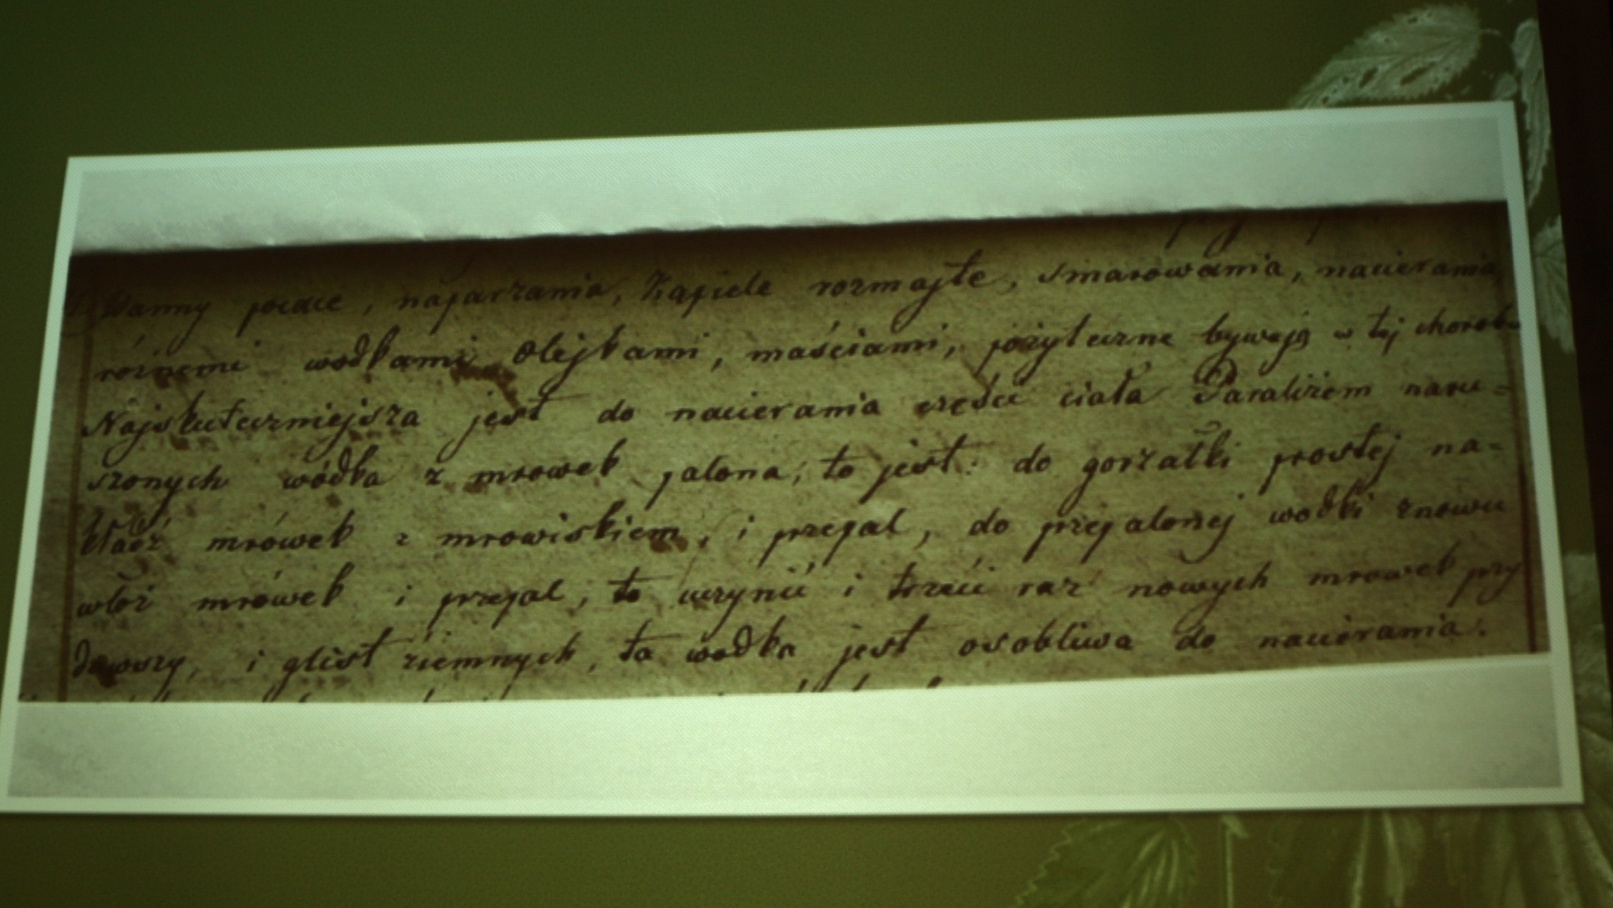 Wanny potne, naparzania, Kąpiele rozmajte, smarowania, nacierania
rożnemi wodkami, Olejkami, maściami, pożyteczne bywają w tej chorobie
Najskuteczniejsza jest do nacierania części ciała Paraliżem naru=
szonych wódka z mrowek palona, to jest: do gorzałki prostej na=
kładź mrówek z mrowiskiem, i przepal, do przepalonej wodki znowu
włoż mrówek i przepal, to uczynić i trzeci raz nowych mrowek przy
dawszy, i glist ziemnych, ta wodka jest osobliwa do nacierania.